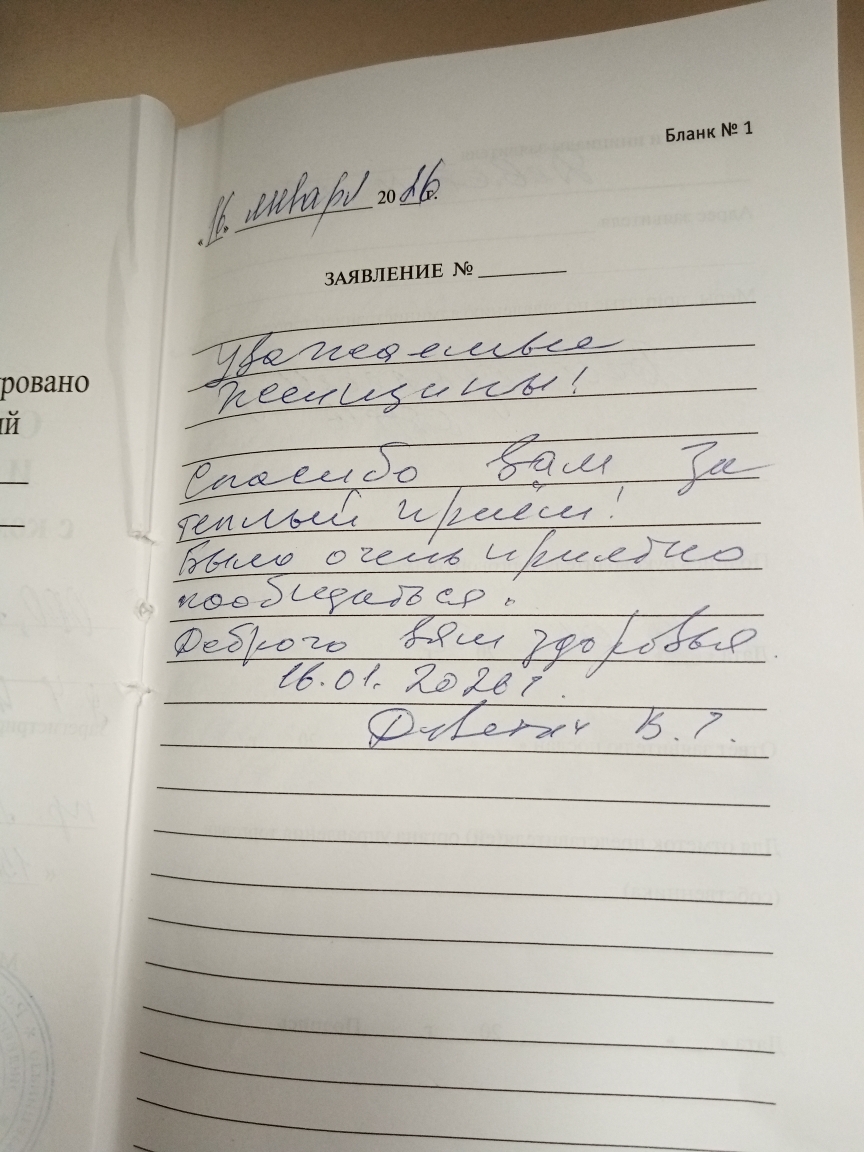 Бланк № 1
«16» января 2026г.
ЗАЯВЛЕНИЕ №
Уважаемые
женщины!
Спасибо вам за
теплый приём!
Было очень приятно
пообщаться.
Доброго вам здоровья.
16.01.2026г.
В. Г.
ровано
ий